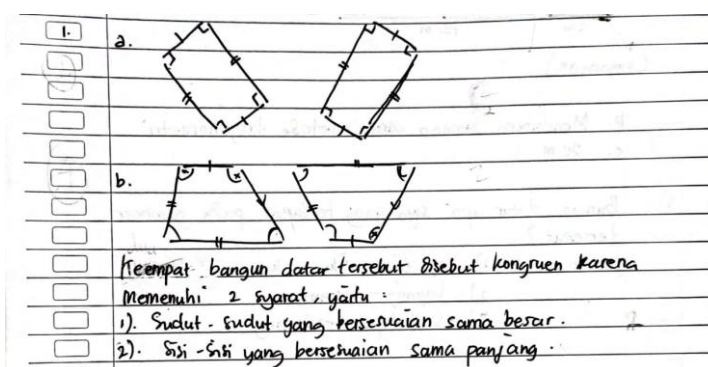 1.
a.
b.
Keempat bangun datar tersebut disebut kongruen karena
Memenuhi 2 syarat, yaitu :
1). Sudut - sudut yang bersesuaian sama besar.
2). Sisi - sisi yang bersesuaian sama panjang.